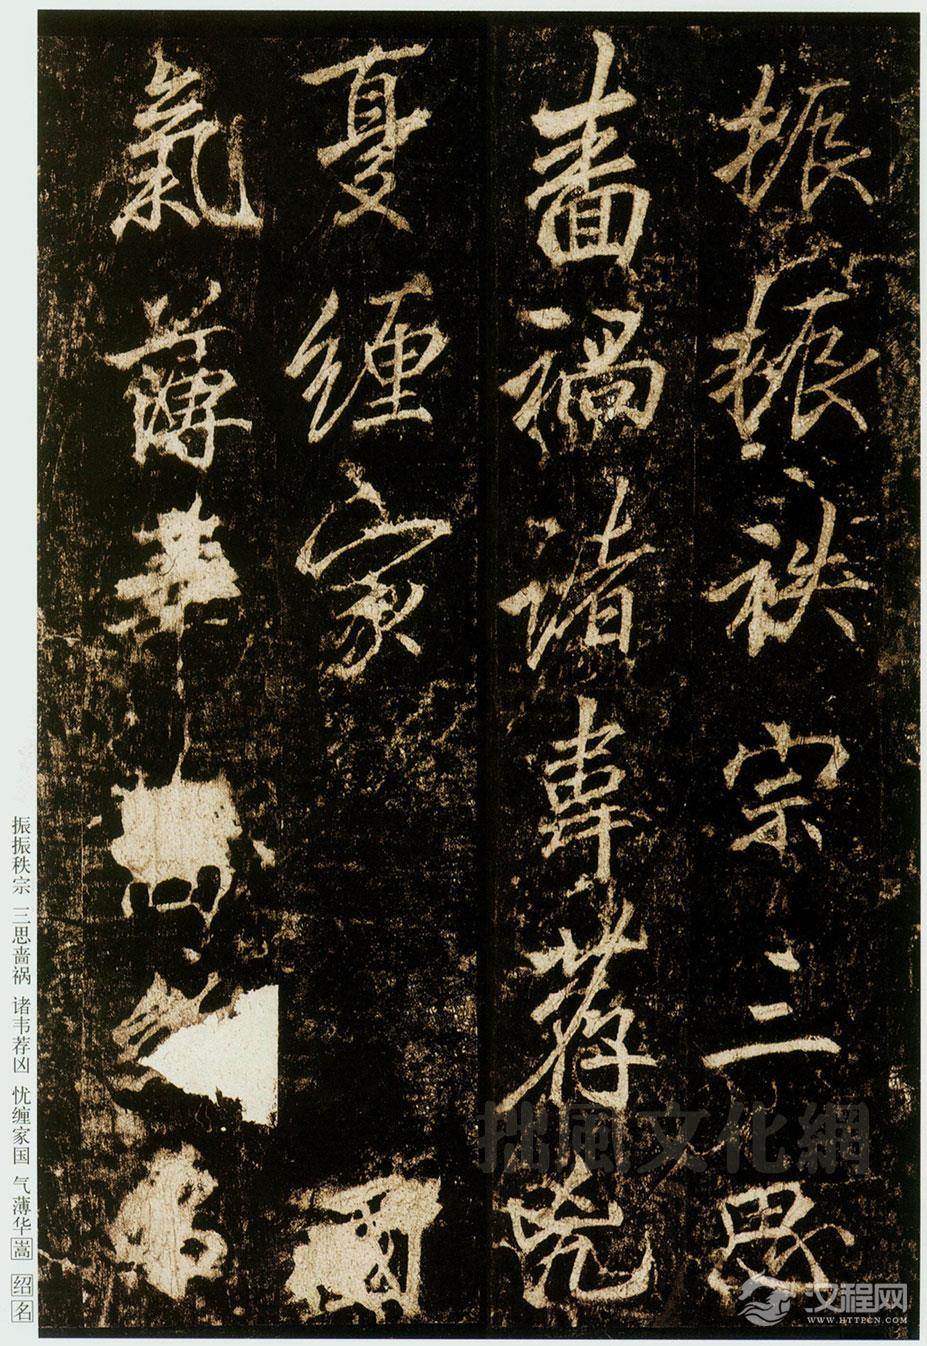 振振袟宗三思
啬禍諸韋荐兇
憂纏家國
氣薄華
振振秩宗 三思啬祸 诸韦荐凶 忧缠家国 气薄华嵩 绍名
拙風文化網
汉程网
WWW.HTTPCN.COM